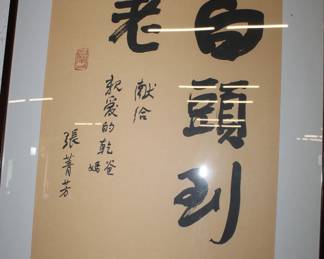 白頭到
老
献给
親愛的乾爸
媽
張菁芳